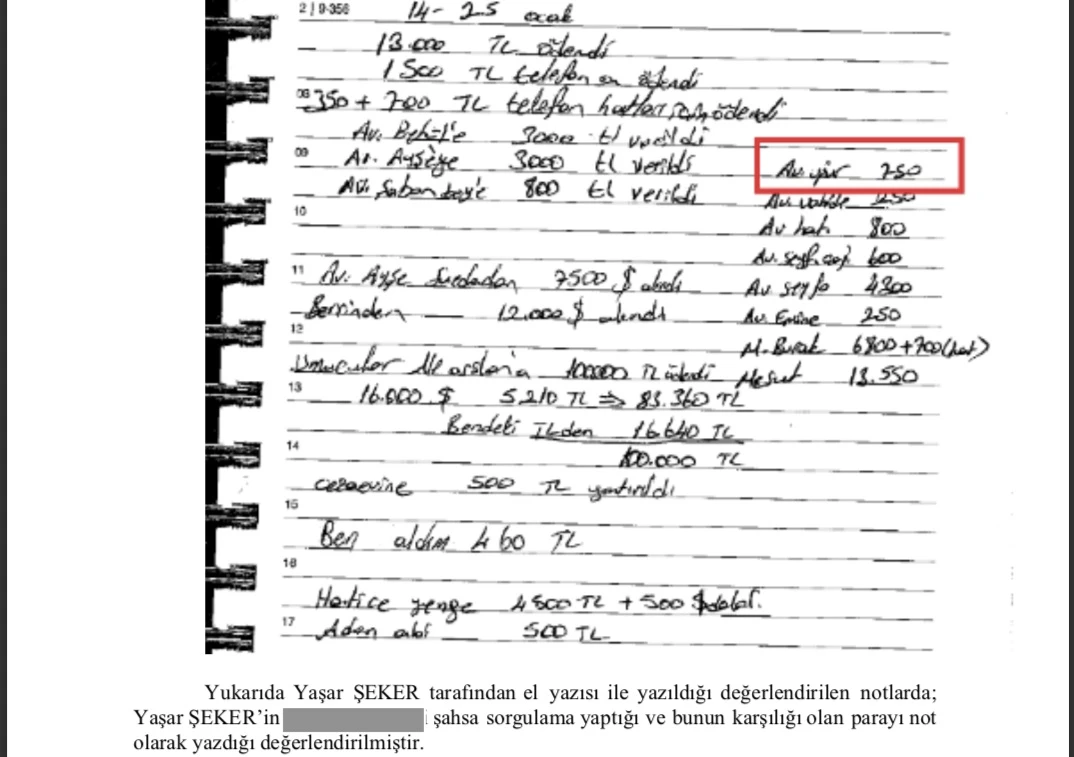 2 | 9-356
14 - 25 ocak
13.000 TL ödendi
1500 TL telefon ödendi
08 350 + 700 TL telefon hatları için ödendi
Av. 3000 tl verildi
09 Av. Ayşeye 3000 tl verildi
Av. Şaban beye 800 tl verildi
10
11 Av. Ayşe 7500 $ alındı
12.000 $ alındı
12
100000 TL ödendi
13 16.000 $ 5.210 TL ⇒ 83.360 TL
Bendeki TLden 16.640 TL
14 100.000 TL
cezaevine 500 TL yatırıldı
15
Ben aldım 460 TL
16
Hatice yenge 4500 TL + 500 $ dolar.
17 abi 500 TL
Av. 250
Av. 250
Av. 800
Av. 600
Av. 4300
Av. Emine 250
M. Burak 6800 + 700 (hat)
Mesut 13.550
Yukarıda Yaşar ŞEKER tarafından el yazısı ile yazıldığı değerlendirilen notlarda;
Yaşar ŞEKER’in şahsa sorgulama yaptığı ve bunun karşılığı olan parayı not
olarak yazdığı değerlendirilmiştir.